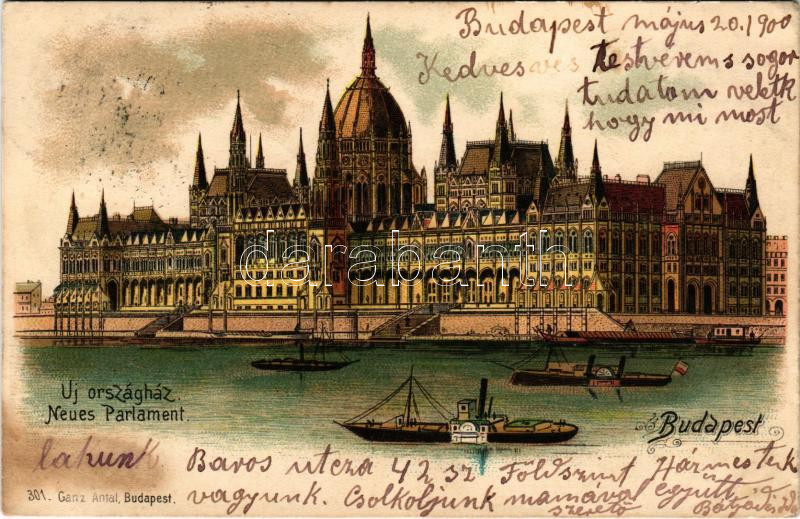 Budapest május 20. 1900
Kedves testvérem s sogor
tudatom veletk
hogy mi most
darabanth
Uj országház.
Neues Parlament.
Budapest
lakunk Baros utcza 42 sz Földszint Hármestek
vagyunk. Csolkoljunk mamával együtt,
szerető
301. Ganz Antal, Budapest.